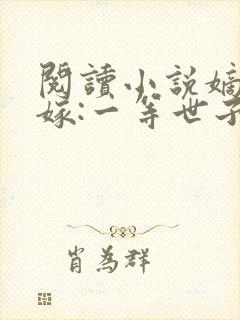 閱讀小說嫡
嫁:一等世子
肖為群